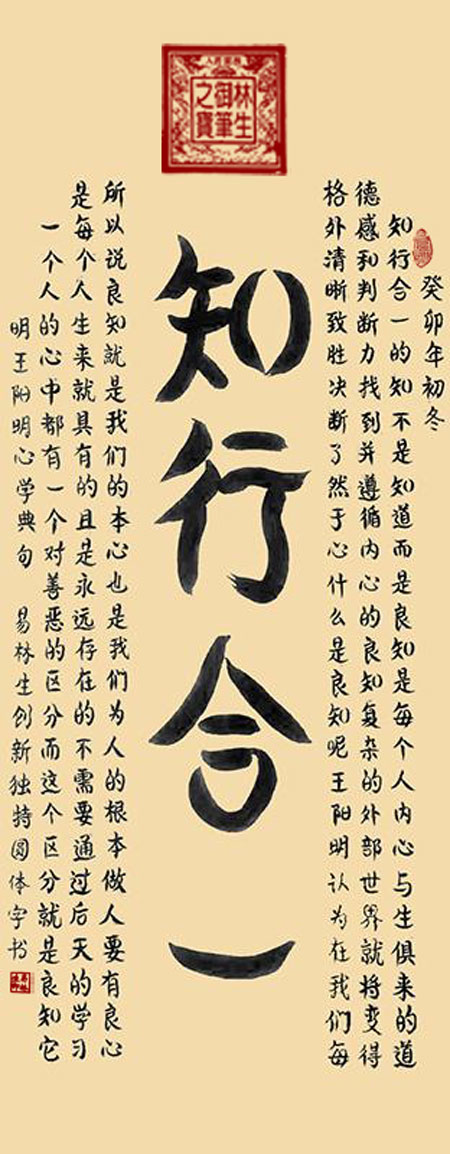 林生
御筆
之寶
癸卯年初冬
知行合一的知不是知道而是良知是每个人内心与生俱来的道
德感和判断力找到并遵循内心的良知复杂的外部世界就将变得
格外清晰致胜决断了然于心什么是良知呢王阳明认为在我们每
知行合一
所以说良知就是我们的本心也是我们为人的根本做人要有良心
是每个人生来就具有的且是永远存在的不需要通过后天的学习
一个人的心中都有一个对善恶的区分而这个区分就是良知它
明王阳明心学典句 易林生创新独特圆体字书